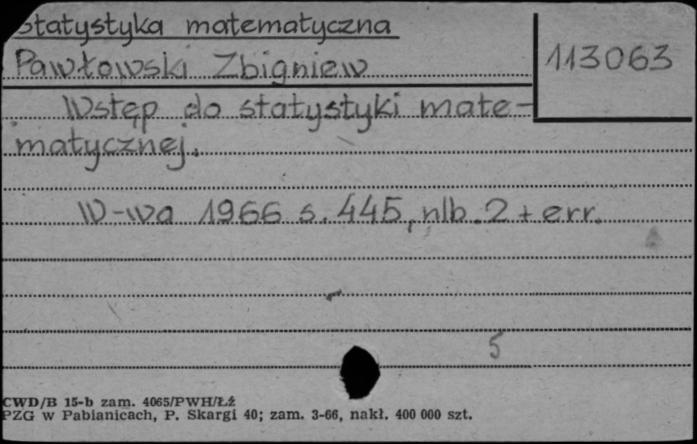 Statystyka matematyczna
Pawłowski Zbigniew
113063
Wstęp do statystyki mate-
matycznej.
W-wa 1966 s. 445, nlb. 2 + err.
5
CWD/B 15-b zam. 4065/PWH/Łź
PZG w Pabianicach, P. Skargi 40; zam. 3-66, nakł. 400 000 szt.